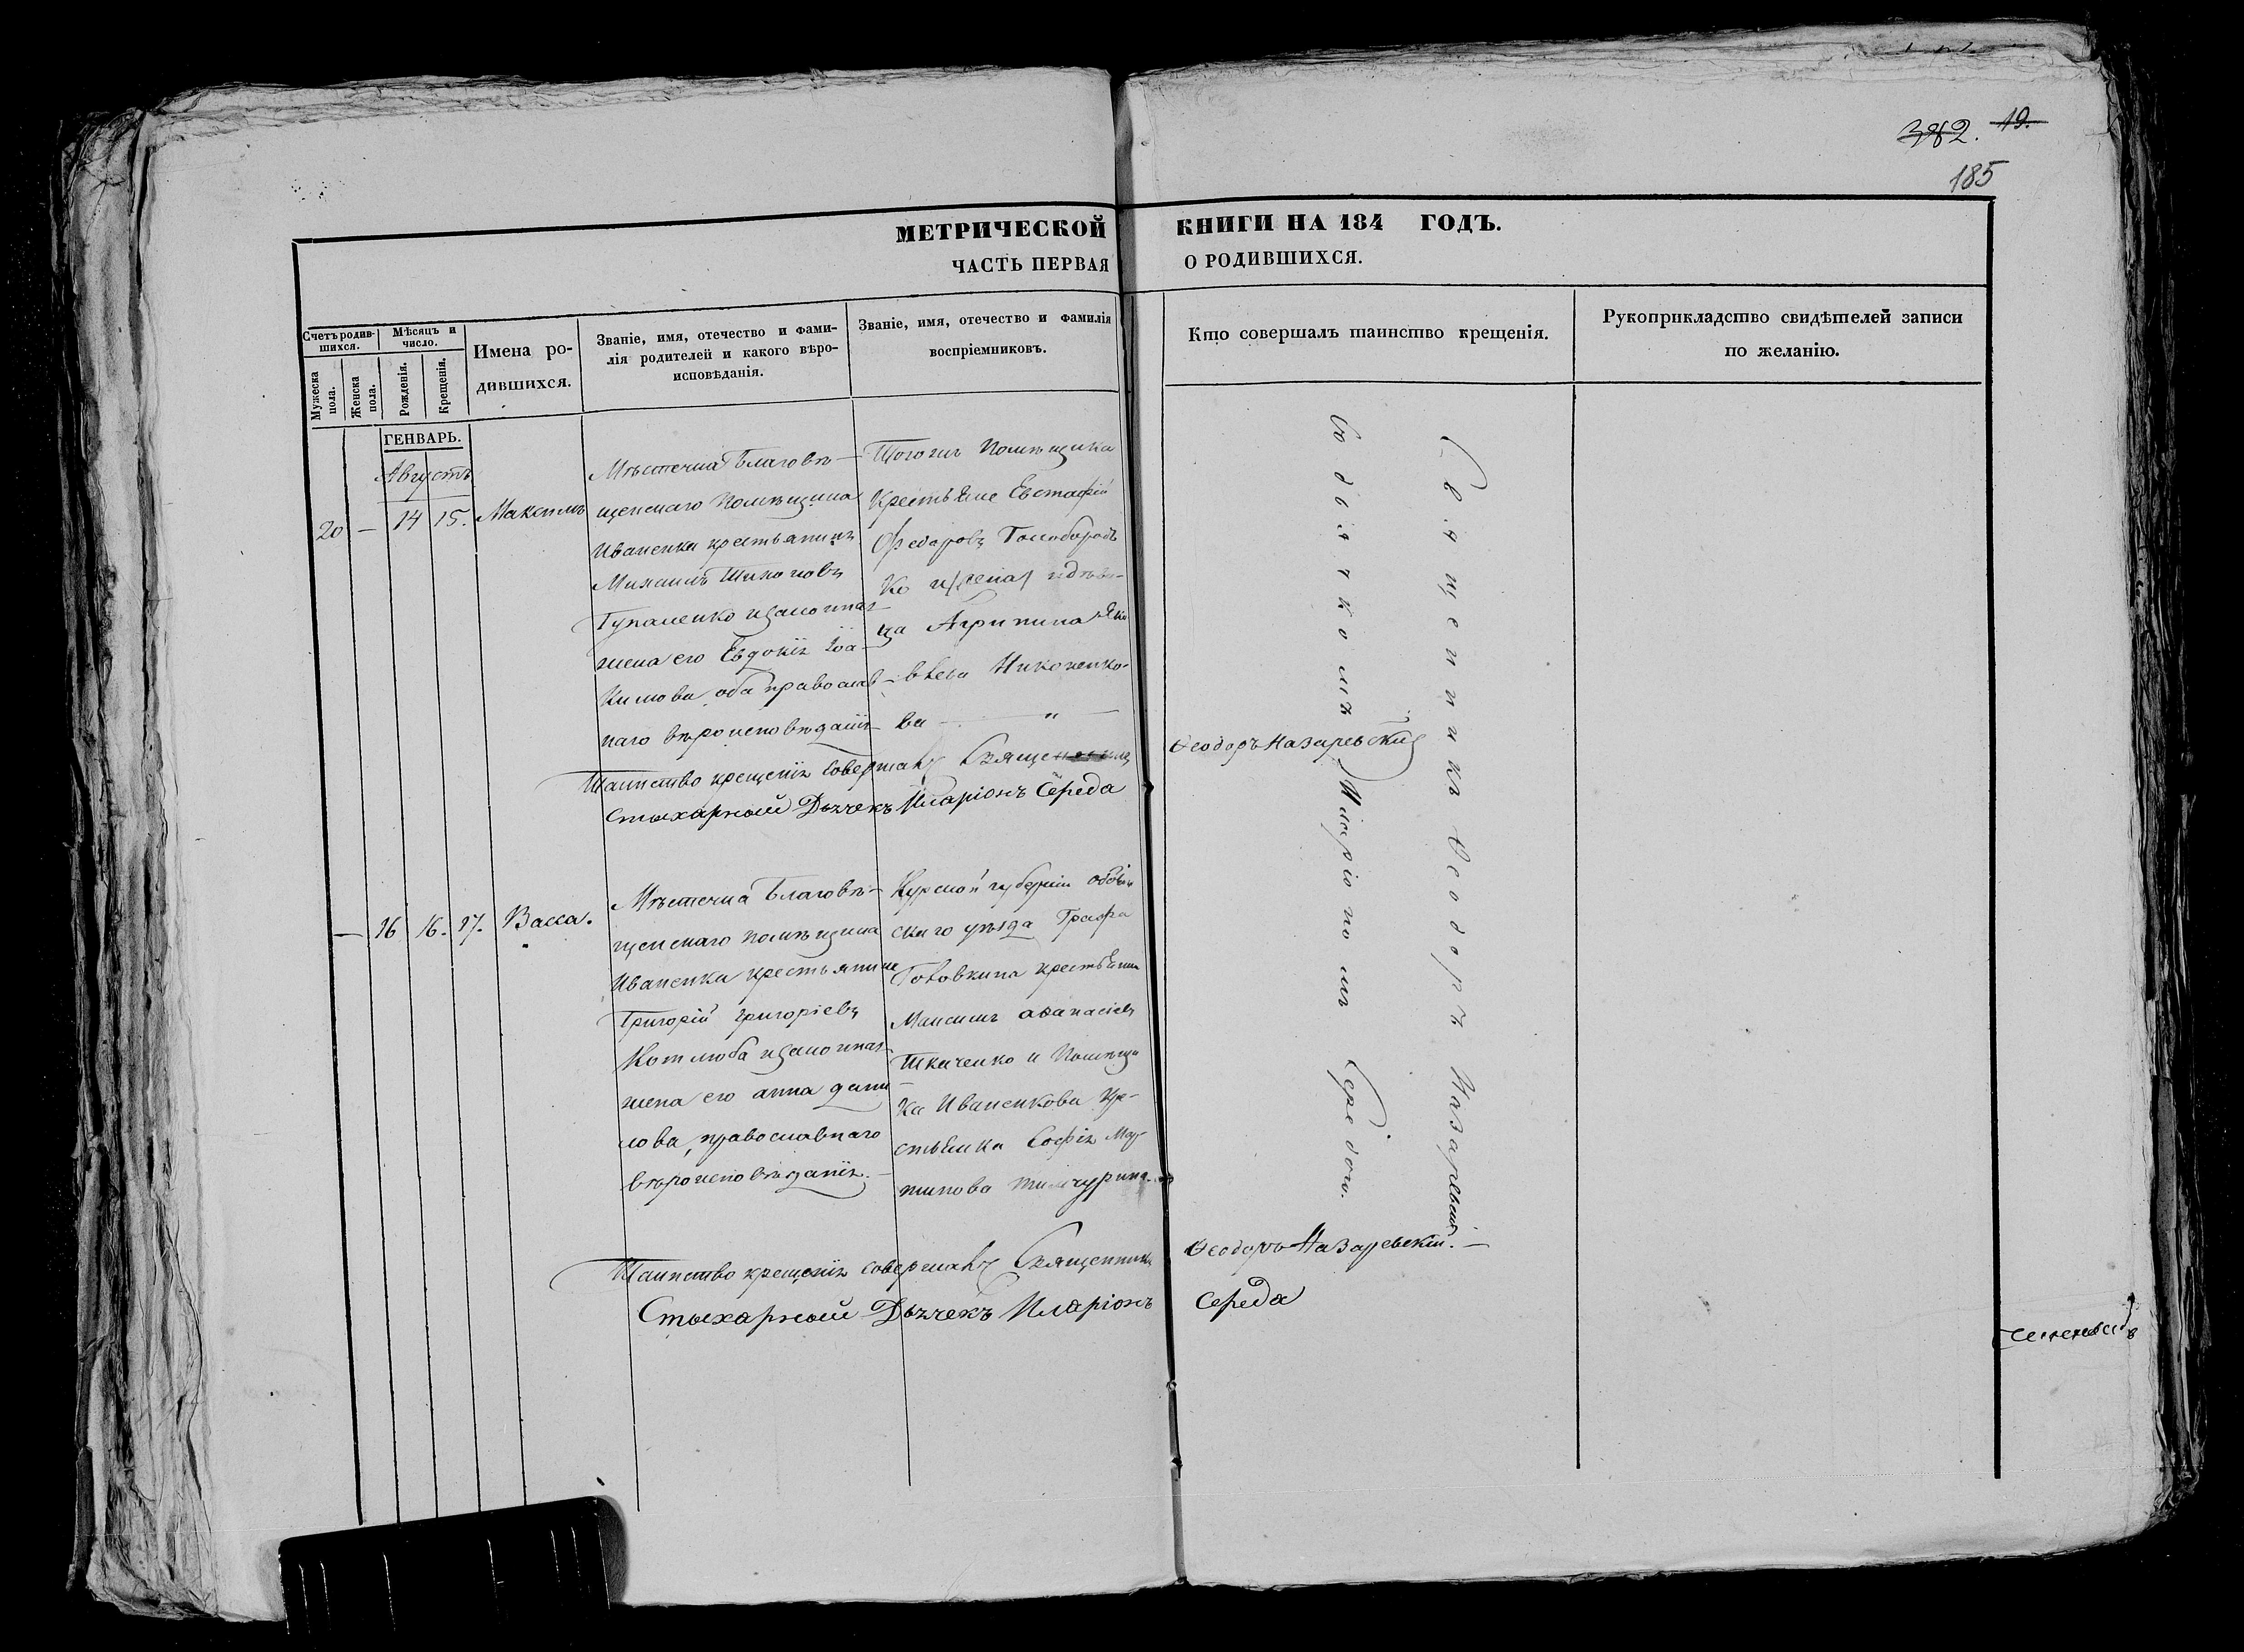 382. 19.
185
МЕТРИЧЕСКОЙ КНИГИ НА 184 ГОДЪ.
ЧАСТЬ ПЕРВАЯ О РОДИВШИХСЯ.
Счетъ родившихся.
Мужеска пола.
Женска пола.
Мѣсяцъ и число.
Рожденія.
Крещенія.
Имена родившихся.
Званіе, имя, отечество и фамилія родителей и какого вѣроисповѣданія.
Званіе, имя, отечество и фамилія воспріемниковъ.
Кто совершалъ таинство крещенія.
Рукоприкладство свидѣтелей записи по желанію.
ГЕНВАРЬ.
Августъ
20 — 14 15. Максимъ
Мѣстечка Благовѣ-
щенскаго помѣщика
Иваненка крестьянинъ
Михаилъ Тихоновъ
изаконная
жена его Евдокія Іоа-
кимова, оба православ-
наго вѣроисповѣданія
Тогожъ помѣщика
Крестьяне Евстафій
Федоровъ
ко и девы-
ца Агрипина Яко-
влева Никоненко-
ва — " —
Таинство крещенія совершалъ Священникъ Ѳеодоръ Назаревскій
Стыхарный Дьячекъ Иларіонъ Середа
— 16 16. 17. Васса.
Мѣстечка Благовѣ-
щенскаго помѣщика
Иваненка крестьянинъ
Григорій Григоріевъ
Котлюба изаконная
жена его анна дани-
лова, православнаго
вѣроисповѣданія. —
Курской губерніи обоян
скаго уѣзда Графа
Головкина крестьянин
Максимъ аѳанасіевъ
Ткаченко и помѣщи-
ка Иваненкова кре-
стьянка Софія Мар-
тинова
Таинство крещенія совершалъ Священникъ Ѳеодоръ Назаревскій. —
Стыхарный Дьячекъ Иларіонъ Середа
Священникъ Ѳеодоръ Назаревскій
Съ дьячкомъ Иларіономъ Середою.